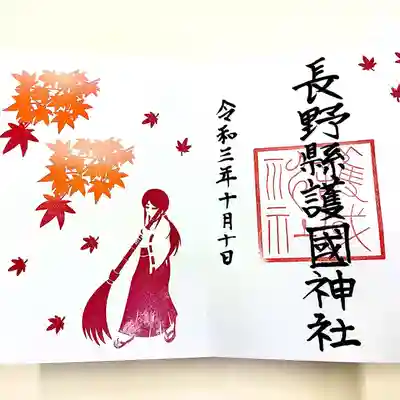 長野縣護國神社
令和三年十月十日